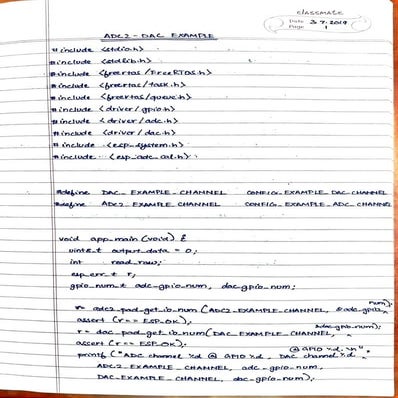 classmate
Date 3-7-2019
Page 1
ADC2 - DAC EXAMPLE
#include <stdio.h>
#include <stdlib.h>
#include <freertos/FreeRTOS.h>
#include <freertos/task.h>
#include <freertos/queue.h>
#include <driver/gpio.h>
#include <driver/adc.h>
#include <driver/dac.h>
#include <esp_system.h>
#include <esp_adc_cal.h>
#define DAC_EXAMPLE_CHANNEL CONFIG_EXAMPLE_DAC_CHANNEL
#define ADC2_EXAMPLE_CHANNEL CONFIG_EXAMPLE_ADC_CHANNEL
void app_main(void) {
uint8_t output_data = 0;
int read_raw;
esp_err_t r;
gpio_num_t adc_gpio_num, dac_gpio_num;
r= adc2_pad_get_io_num (ADC2_EXAMPLE_CHANNEL, &adc_gpio_num);
assert (r == ESP_OK);
r = dac_pad_get_io_num(DAC_EXAMPLE_CHANNEL, &dac_gpio_num);
assert (r == ESP_OK);
printf ("ADC channel %d @ GPIO %d, DAC channel %d @ GPIO %d.\n",
ADC2_EXAMPLE_CHANNEL, adc_gpio_num,
DAC_EXAMPLE_CHANNEL, dac_gpio_num);